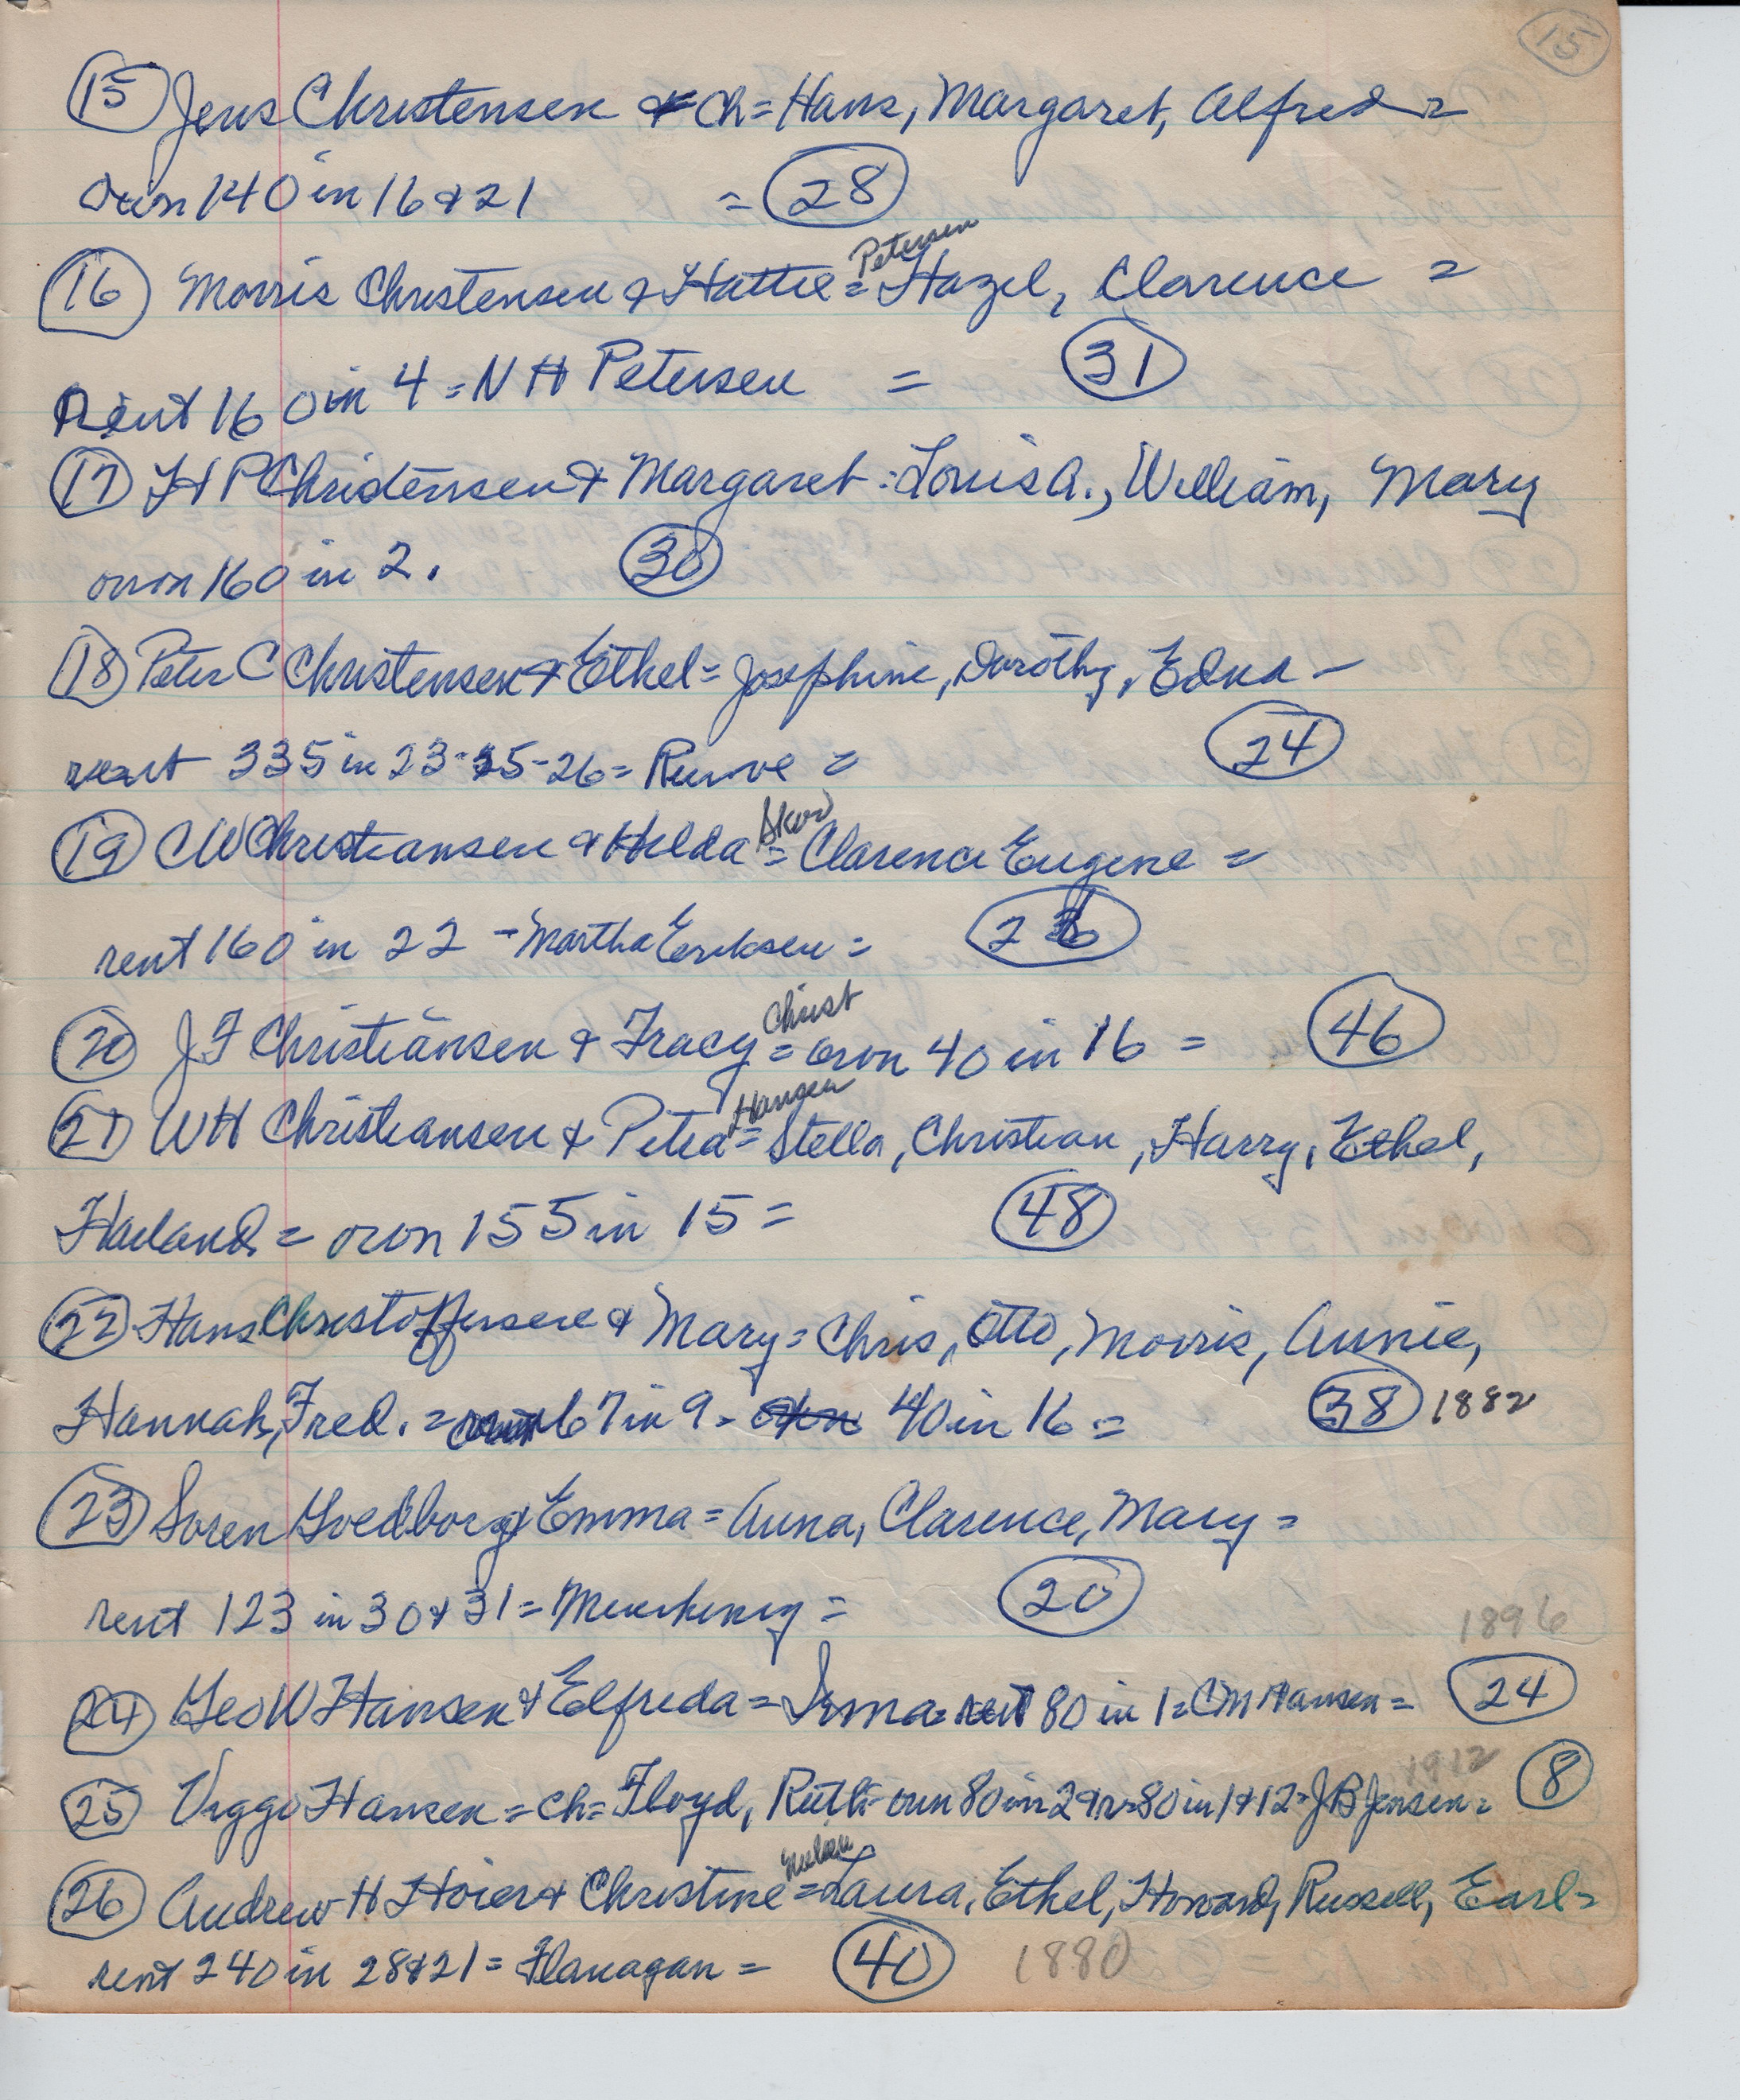 15
15 Jens Christensen & Ch = Hans, Margaret, Alfred =
own 140 in 16 & 21 = 28
Petersen
16 Morris Christensen & Hattie = Hazel, Clarence =
Rent 160 in 4 = N H Petersen = 31
17 H P Christensen & Margaret = Louis A., William, Mary
own 160 in 2. 30
18 Peter C Christensen & Ethel = Josephine, Dorothy, Edna -
rent 335 in 23-25-26 = = 24
Skov
19 C W Christiansen & Hilda = Clarence Eugene =
rent 160 in 22 - Martha Eriksen = 26
Christ
20 J F Christiansen & Tracy = own 40 in 16 = 46
Hansen
21 W H Christiansen & Petea = Stella, Christian, Harry, Ethel,
Harland = own 155 in 15 = 48
22 Hans Christoffersen & Mary = Chris, Otto, Morris, Annie,
Hannah, Fred. = 67 in 9 - 40 in 16 = 38 1882
23 Soren Goedborg & Emma = Anna, Clarence, Mary =
rent 123 in 30 & 31 = = 20
1896
24 Geo W Hansen & Elfreda = Irma = rent 80 in 1 = C M Hansen = 24
1912
25 Viggo Hansen = ch = Floyd, Ruth = own 80 in 2 & r = 80 in 1 & 12 = J B Jensen = 8
26 Andrew H Hoier & Christine = Laura, Ethel, Howard, Russell, Earl =
rent 240 in 28 & 21 = Flanagan = 40 1880